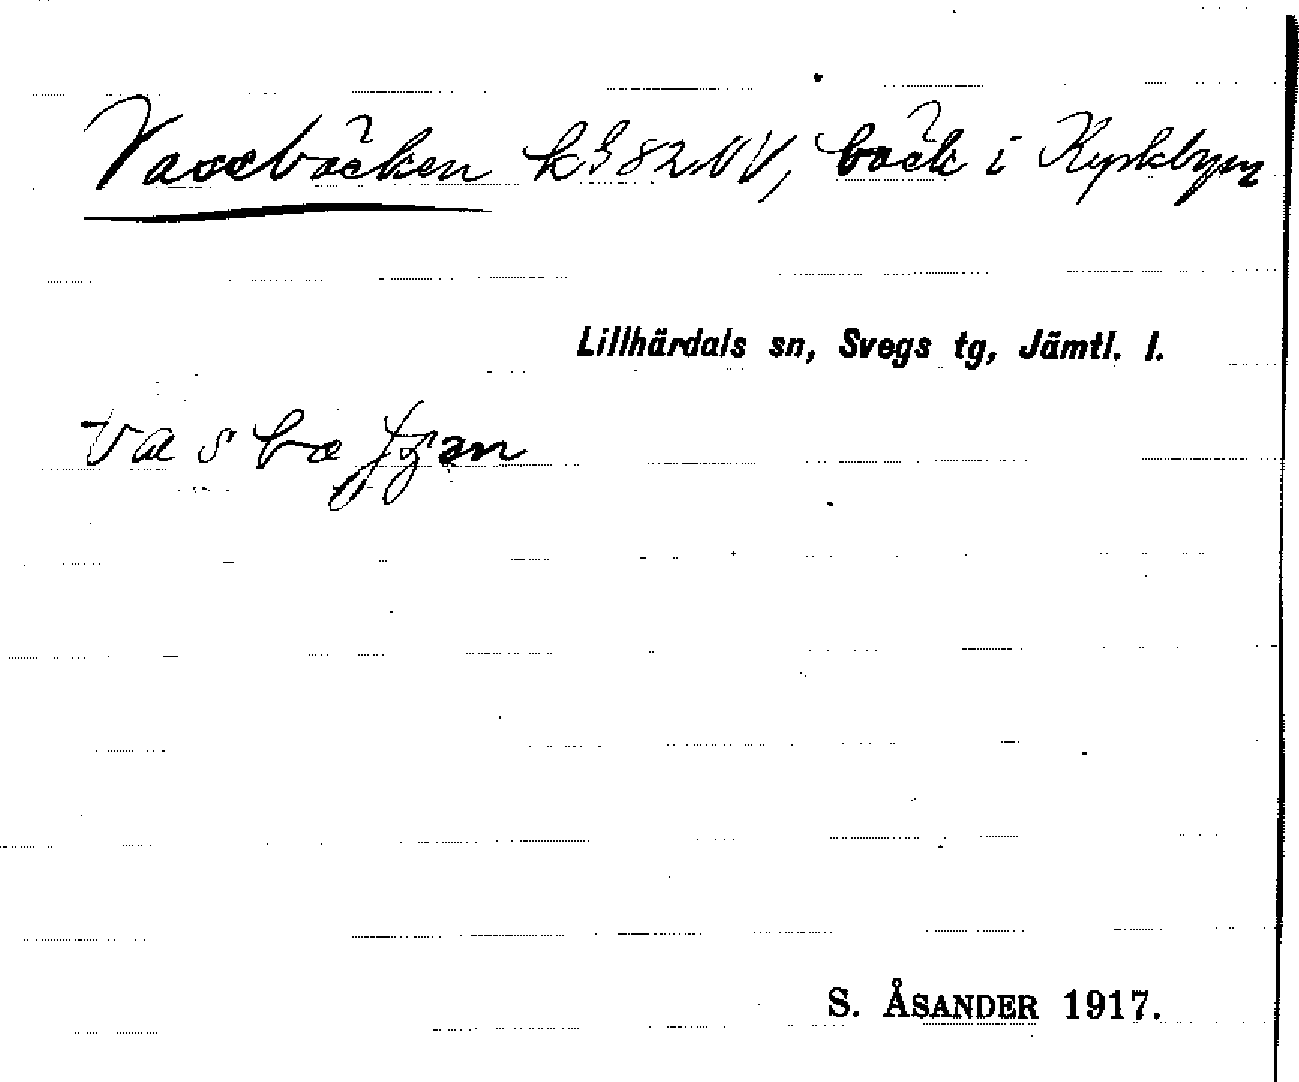 Vassbäcken k382NV, bäck i Kyrkbyn
Lillhärdals sn, Svegs tg, Jämtl. l.
S. ÅSANDER 1917.